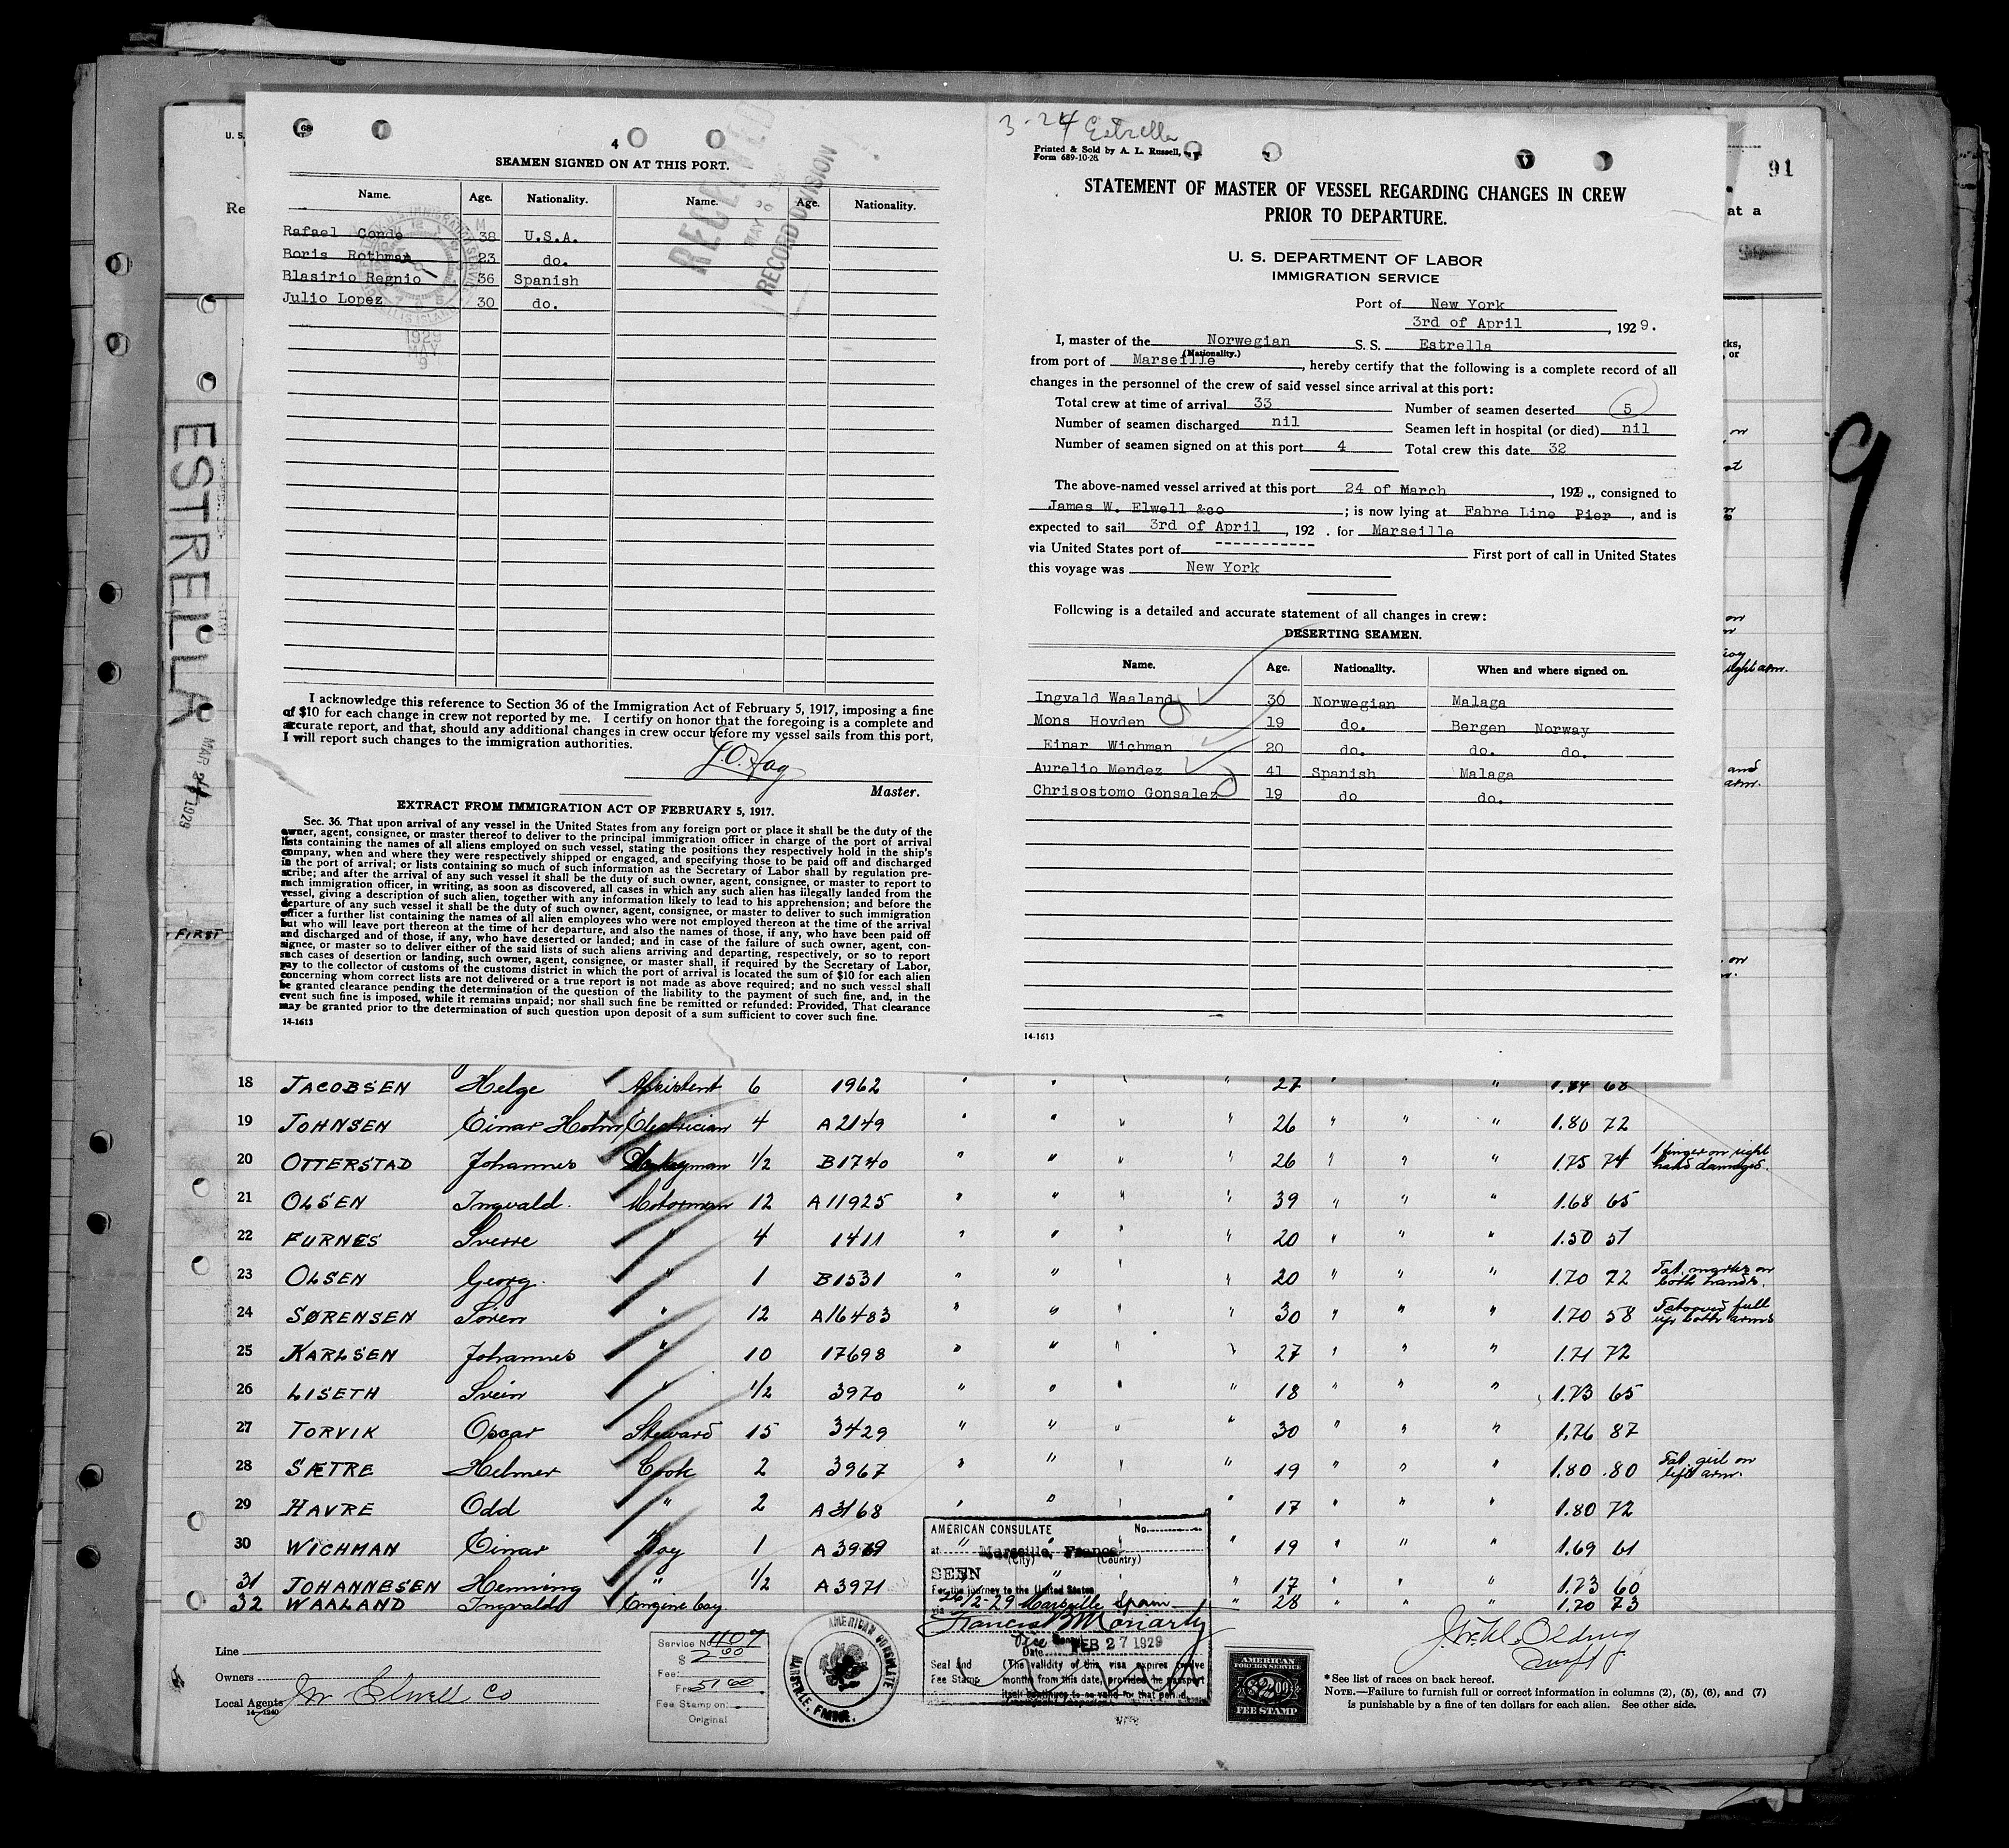 4
SEAMEN SIGNED ON AT THIS PORT.
Name. Age. Nationality. Name. Age. Nationality.
Rafael Conde 38 U.S.A.
Boris Rothman 23 do.
Blasirio Regnio 36 Spanish
Julio Lopez 30 do.
RECEIVED
MAY 8
RECORD DIVISION
1929
MAY
9
I acknowledge this reference to Section 36 of the Immigration Act of February 5, 1917, imposing a fine
of $10 for each change in crew not reported by me. I certify on honor that the foregoing is a complete and
accurate report, and that, should any additional changes in crew occur before my vessel sails from this port,
I will report such changes to the immigration authorities.
Master.
EXTRACT FROM IMMIGRATION ACT OF FEBRUARY 5, 1917.
Sec. 36. That upon arrival of any vessel in the United States from any foreign port or place it shall be the duty of the
owner, agent, consignee, or master thereof to deliver to the principal immigration officer in charge of the port of arrival
lists containing the names of all aliens employed on such vessel, stating the positions they respectively hold in the ship's
company, when and where they were respectively shipped or engaged, and specifying those to be paid off and discharged
in the port of arrival; or lists containing so much of such information as the Secretary of Labor shall by regulation pre-
scribe; and after the arrival of any such vessel it shall be the duty of such owner, agent, consignee, or master to report to
such immigration officer, in writing, as soon as discovered, all cases in which any such alien has illegally landed from the
vessel, giving a description of such alien, together with any information likely to lead to his apprehension; and before the
departure of any such vessel it shall be the duty of such owner, agent, consignee, or master to deliver to such immigration
officer a further list containing the names of all alien employees who were not employed thereon at the time of the arrival
but who will leave port thereon at the time of her departure, and also the names of those, if any, who have been paid off
and discharged and of those, if any, who have deserted or landed; and in case of the failure of such owner, agent, con-
signee, or master so to deliver either of the said lists of such aliens arriving and departing, respectively, or so to report
such cases of desertion or landing, such owner, agent, consignee, or master shall, if required by the Secretary of Labor,
pay to the collector of customs of the customs district in which the port of arrival is located the sum of $10 for each alien
concerning whom correct lists are not delivered or a true report is not made as above required; and no such vessel shall
be granted clearance pending the determination of the question of the liability to the payment of such fine, and, in the
event such fine is imposed, while it remains unpaid; nor shall such fine be remitted or refunded: Provided, That clearance
may be granted prior to the determination of such question upon deposit of a sum sufficient to cover such fine.
14-1613
3-24 Estrella
Printed & Sold by A. L. Russell,
Form 689-10-28
STATEMENT OF MASTER OF VESSEL REGARDING CHANGES IN CREW
PRIOR TO DEPARTURE.
U. S. DEPARTMENT OF LABOR
IMMIGRATION SERVICE
Port of New York
3rd of April, 1929.
I, master of the Norwegian S. S. Estrella
(Nationality.)
from port of Marseille, hereby certify that the following is a complete record of all
changes in the personnel of the crew of said vessel since arrival at this port:
Total crew at time of arrival 33 Number of seamen deserted 5
Number of seamen discharged nil Seamen left in hospital (or died) nil
Number of seamen signed on at this port 4 Total crew this date 32
The above-named vessel arrived at this port 24 of March, 1929., consigned to
James W. Elwell &co; is now lying at Fabre Line Pier, and is
expected to sail 3rd of April, 192 . for Marseille
via United States port of ----------- First port of call in United States
this voyage was New York
Following is a detailed and accurate statement of all changes in crew:
DESERTING SEAMEN.
Name. Age. Nationality. When and where signed on.
Ingvald Waaland 30 Norwegian Malaga
Mons Hovden 19 do. Bergen Norway
Einar Wichman 20 do. do. do.
Aurelio Mendez 41 Spanish Malaga
Chrisostomo Gonsalez 19 do do.
14-1613
91
at a
9
ESTRELLA
MAR 24 1929
FIRST
18 JACOBSEN Helge Assistent 6 1962 " " " " 27 " " " 1.74 68
19 JOHNSEN Einar Holm Electrician 4 A2149 " " " " 26 " " " 1.80 72
20 OTTERSTAD Johannes Donkeyman 1/2 B1740 " " " " 26 " " " 1.75 74 1 finger on right hand damaged.
21 OLSEN Ingvald. Motorman 12 A11925 " " " " 39 " " " 1.68 65
22 FURNES Sverre " 4 1411 " " " " 20 " " " 1.50 51
23 OLSEN Georg. " 1 B1531 " " " " 20 " " " 1.70 72 Tat. marks on both hands.
24 SØRENSEN Sören " 12 A16483 " " " " 30 " " " 1.70 58 Tatooed full up both arms
25 KARLSEN Johannes " 10 17698 " " " " 27 " " " 1.71 72
26 LISETH Svein " 1/2 3970 " " " " 18 " " " 1.73 65
27 TORVIK Oscar Steward 15 3429 " " " " 30 " " " 1.76 87
28 SÆTRE Helmer Cook 2 3967 " " " " 19 " " " 1.80 80 Tat. girl on left arm.
29 HAVRE Odd " 2 A3168 " " " " 17 " " " 1.80 72
30 WICHMAN Einar Boy 1 A3969 " " " " 19 " " " 1.69 61
31 JOHANNESEN Henning " 1/2 A3971 " " 17 " " " 1.73 60
32 WAALAND Ingvald Engine boy. Marseille Spain " 28 " " " 1.70 73
AMERICAN CONSULATE No.
at Marseille, France
(City) (Country)
SEEN
For the journey to the United States
via
26/2-29
Francis B Moriarty
Vice
Date FEB 27 1929
Seal and
Fee Stamp
(The validity of this visa expires twelve
months from this date, provided the passport
itself continues to be valid for that period.
Line
Owners
Local Agents JW Elwell Co
14-1240
Service No. 1107
$ 2.00
Fee:
Fr. 51.00
Fee Stamp on:
Original
AMERICAN CONSULATE
MARSEILLE, FRANCE.
AMERICAN
FOREIGN SERVICE
$2.00
FEE STAMP
* See list of races on back hereof.
NOTE.—Failure to furnish full or correct information in columns (2), (5), (6), and (7)
is punishable by a fine of ten dollars for each alien. See other side.